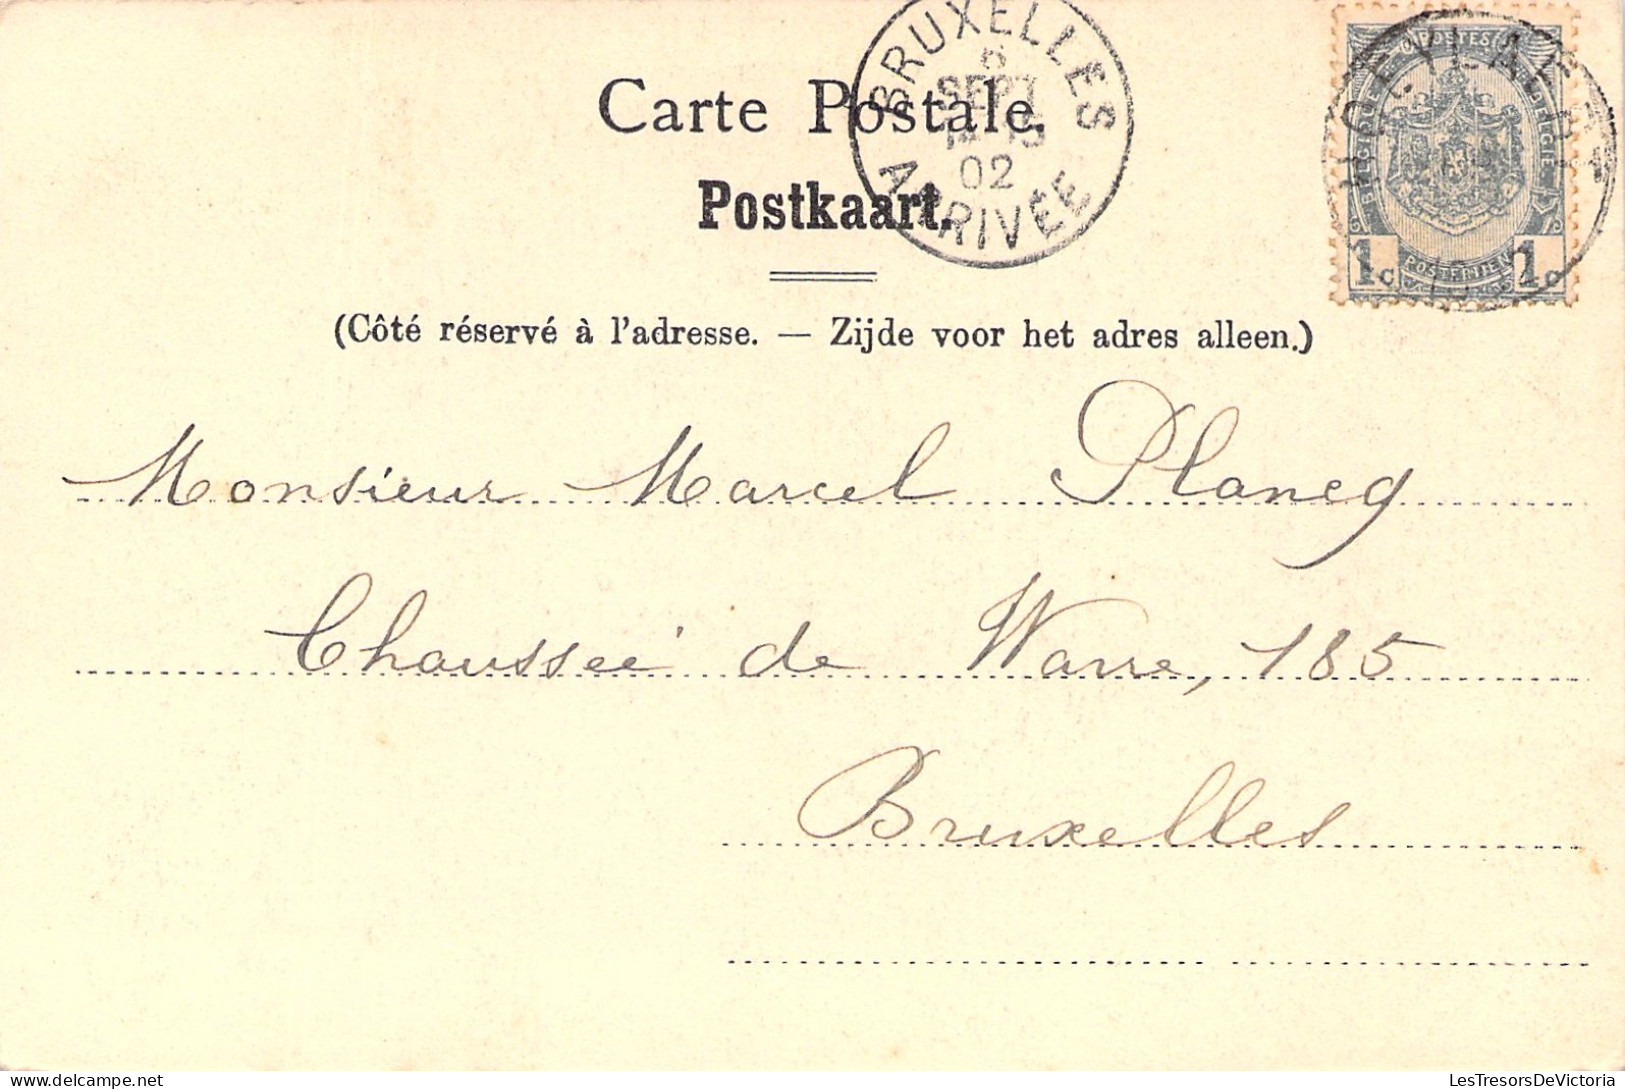 BRUXELLES
6
SEPT
02
ARRIVÉE
HOEYLAERT
POSTES
BELGIQUE
BELGIE
POSTERIJEN
1c 1c
Carte Postale.
Postkaart.
(Côté réservé à l'adresse. — Zijde voor het adres alleen.)
Monsieur Marcel Plancq
Chaussée de Wavre, 185
Bruxelles
LesTresorsDeVictoria